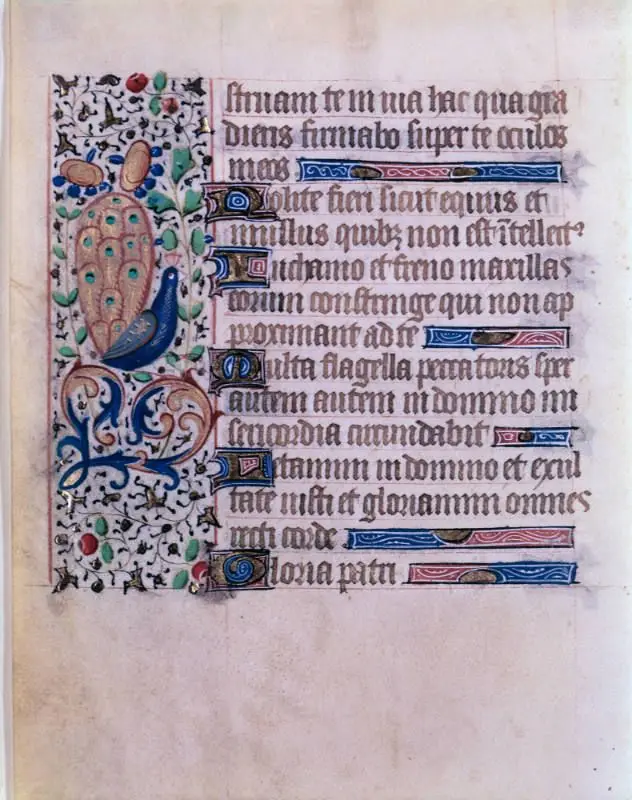 struam te in uia hac qua gra
dieris firmabo super te oculos
meos
Nolite fieri sicut equus et
mullus quibꝫ non est ītellectꝰ
In chamo et freno maxillas
eorum constringe qui non ap
proximant ad te
Multa flagella peccatoris sper
autem autem in domino mi
sericordia circundabit
Letamini in domino et exul
tate iusti et gloriamini omnes
recti corde
Gloria patri